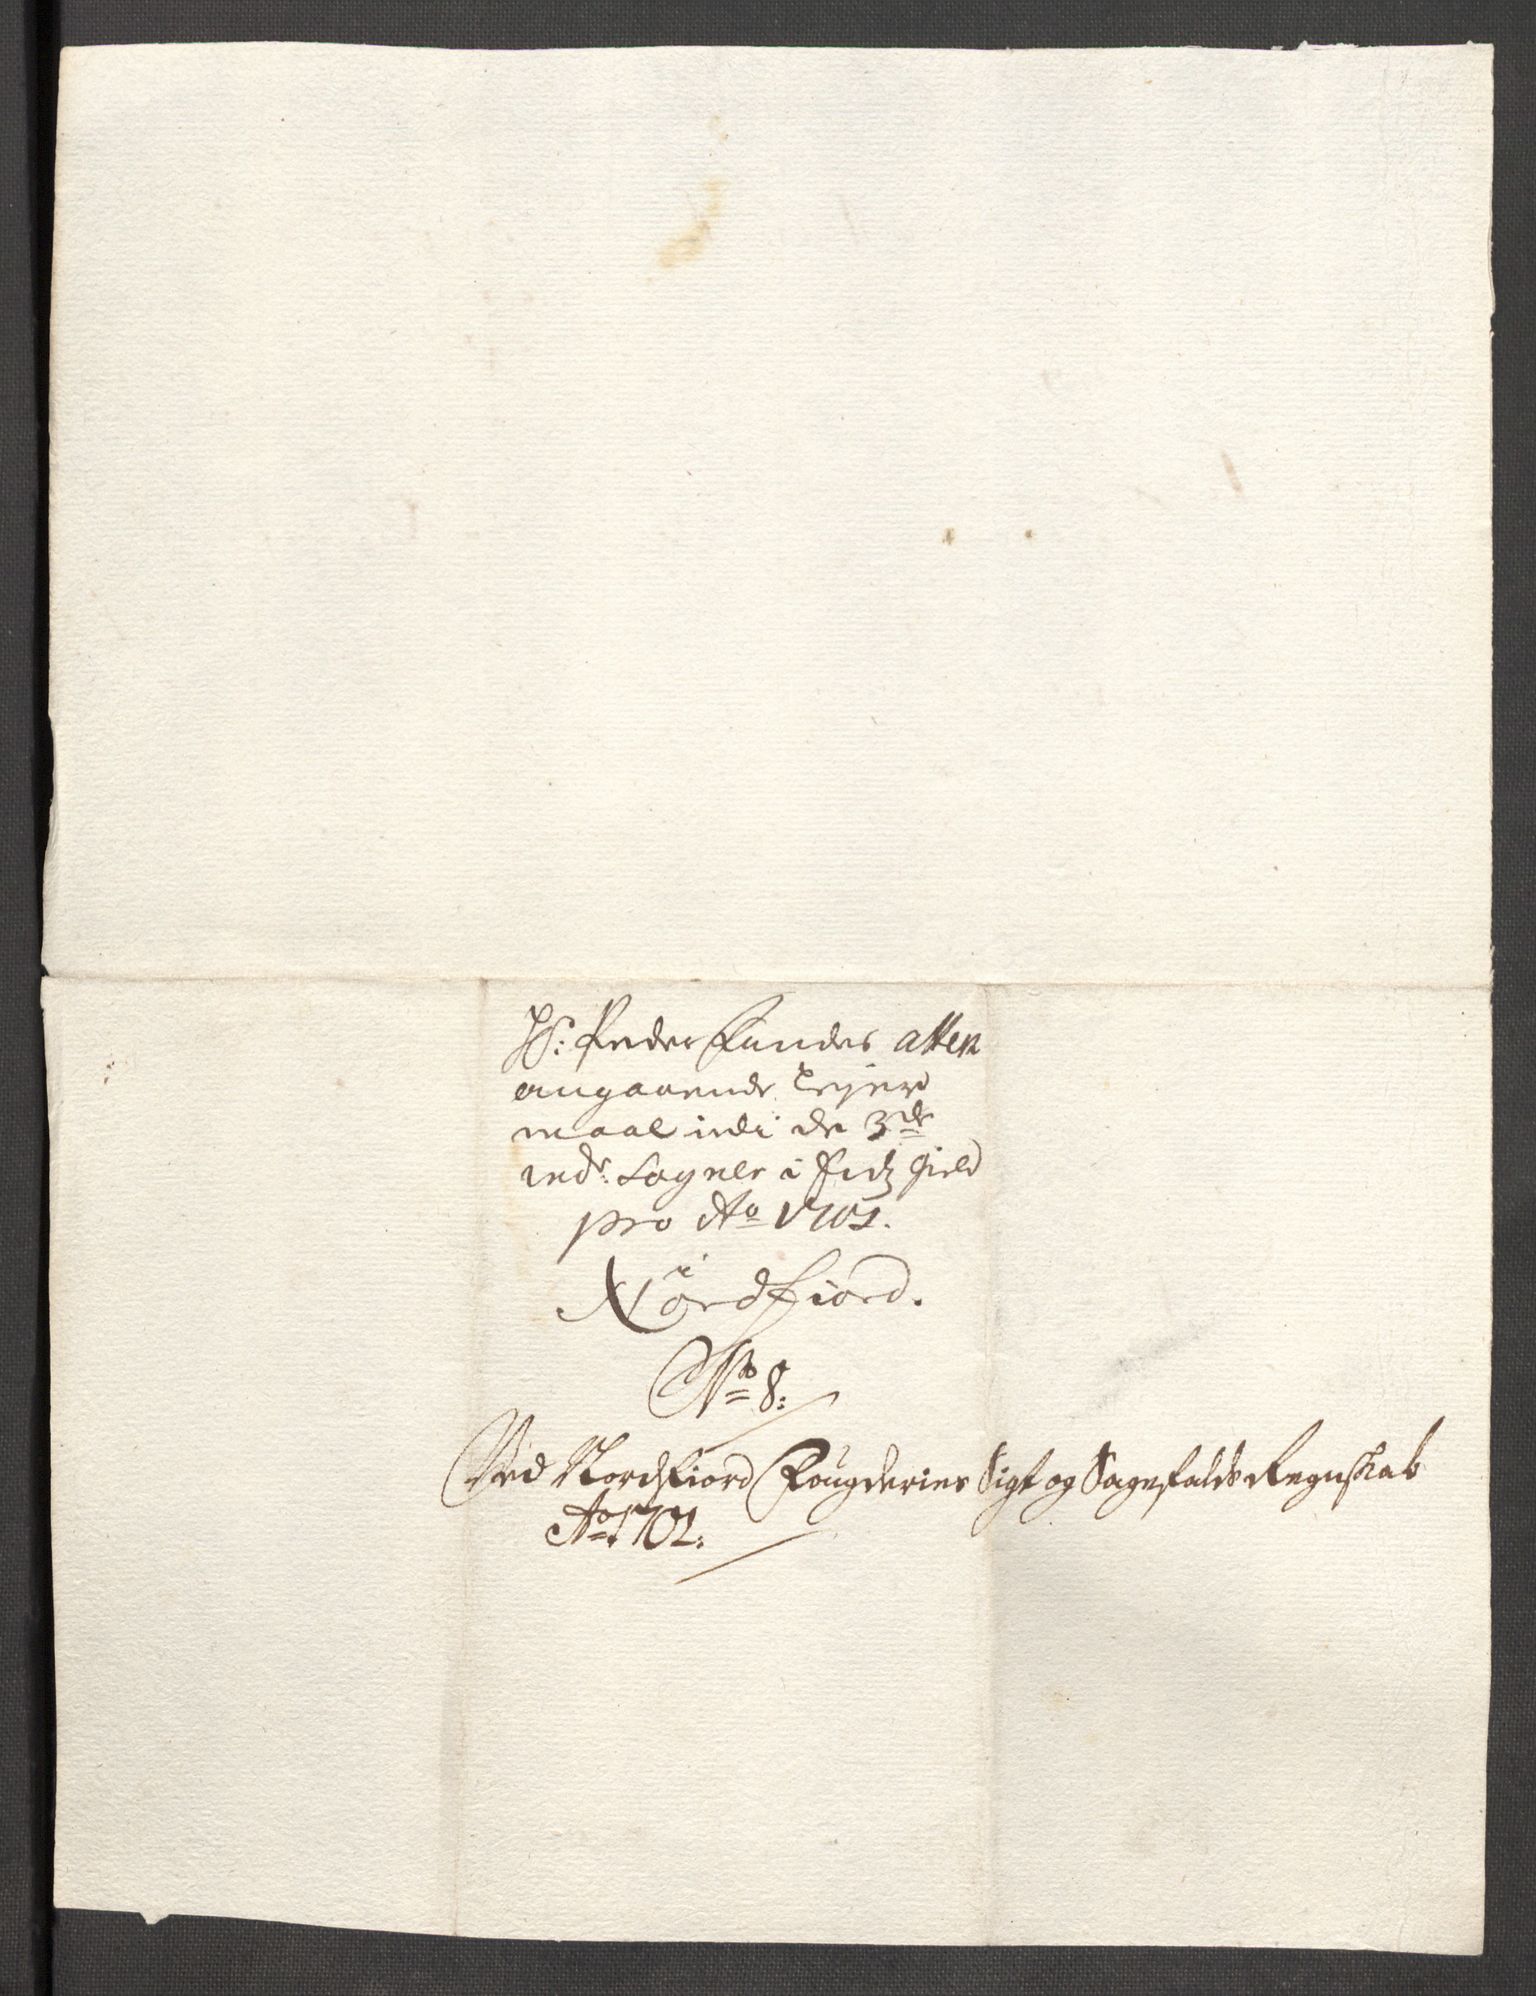 Hr: Peder Fundes attest
angaaende Leyer
maal udi de 3de
neds: Sogner i Eidz gield
pro Ao 1701.
Nordfiord.
No 8:
Ved Nordfiord Fougderies Sigt og Sagefalds Regnskab
Ao 1701: